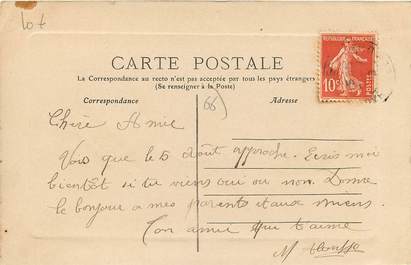 Lot
CARTE POSTALE
REPUBLIQUE FRANÇAISE
10c
POSTES
La Correspondance au recto n'est pas acceptée par tous les pays étrangers
(Se renseigner à la Poste)
Correspondance
Adresse
66
Chère Amie
Vois que le 15 Août approche. Ecris moi
bientôt si tu viens oui ou non. Donne
le bonjour a mes parents et aux miens.
Ton amie qui t'aime
M